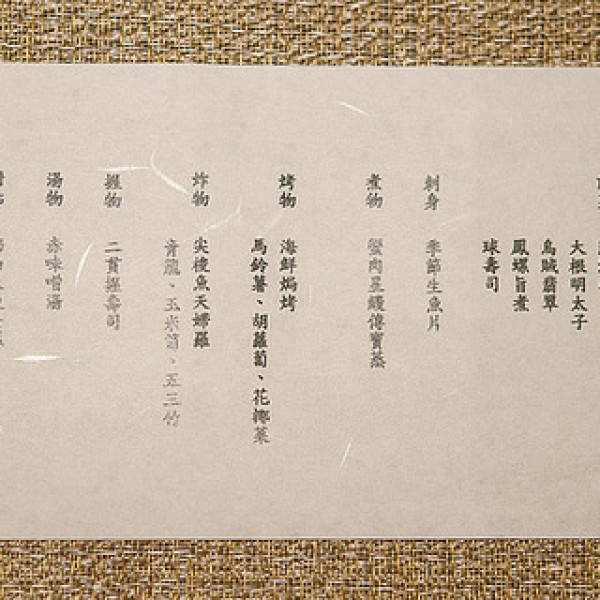 大根明太子
烏賊翡翠
鳳螺旨煮
球壽司
刺身 季節生魚片
煮物 蟹肉星鰻傳寶蒸
烤物 海鮮焗烤
馬鈴薯、胡蘿蔔、花椰菜
炸物 尖梭魚天婦羅
青龍、玉米筍、五三竹
握物 二貫握壽司
湯物 赤味噌湯